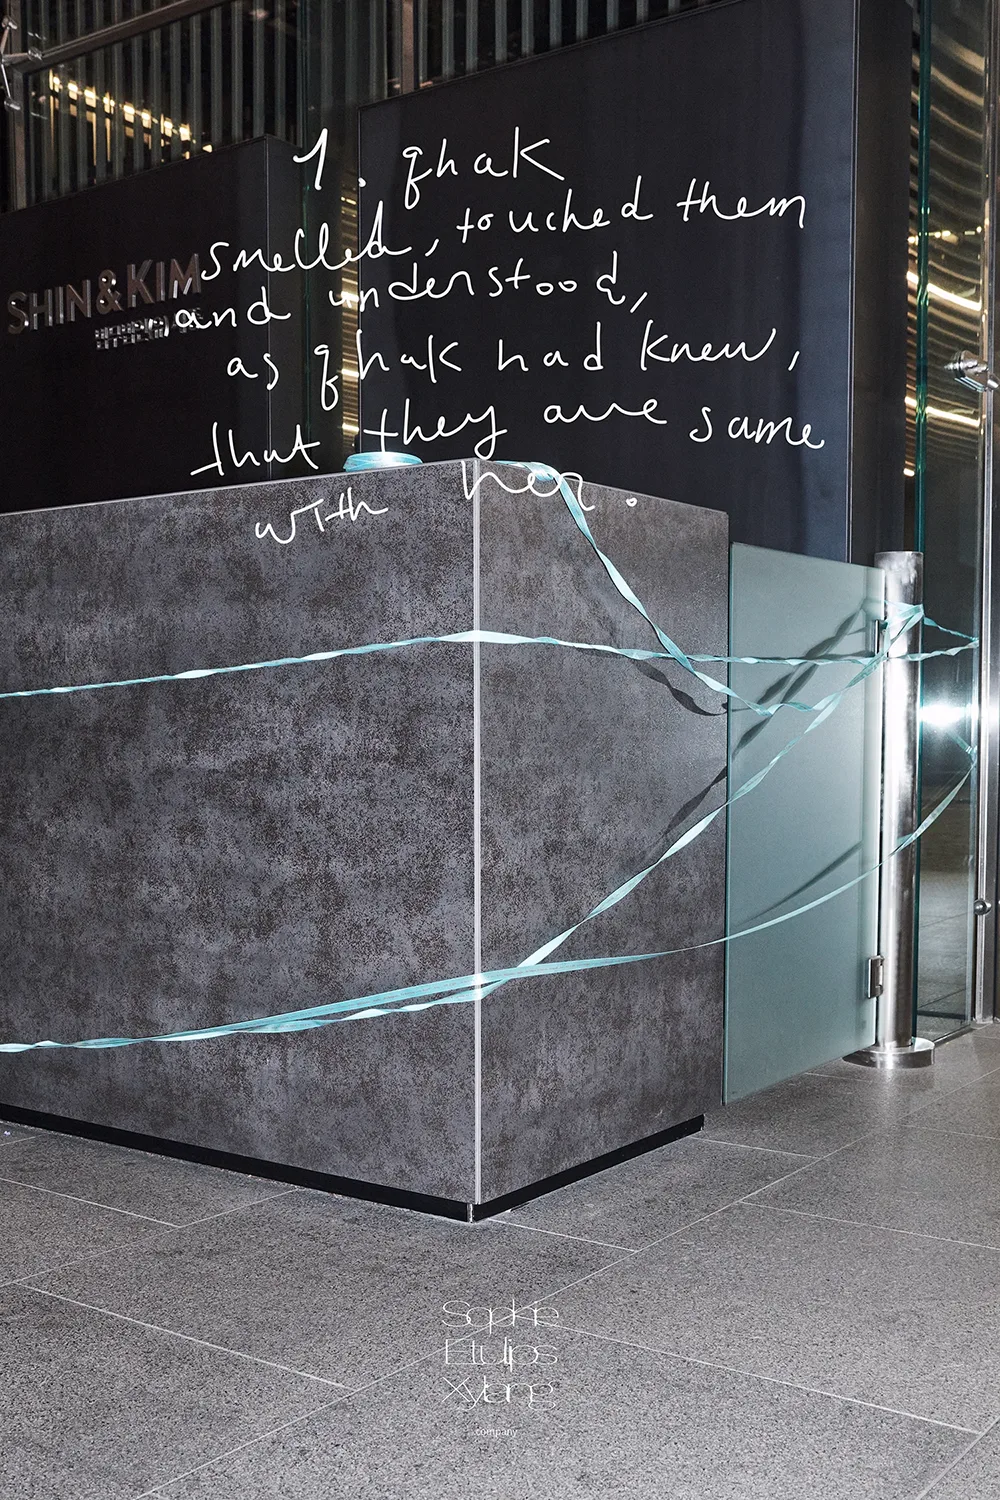 1. qhak
smelled, touched them
and understood,
as qhak had knew,
that they are same
with her.
SHIN&KIM
Sophie
Etulips
Xylang
company